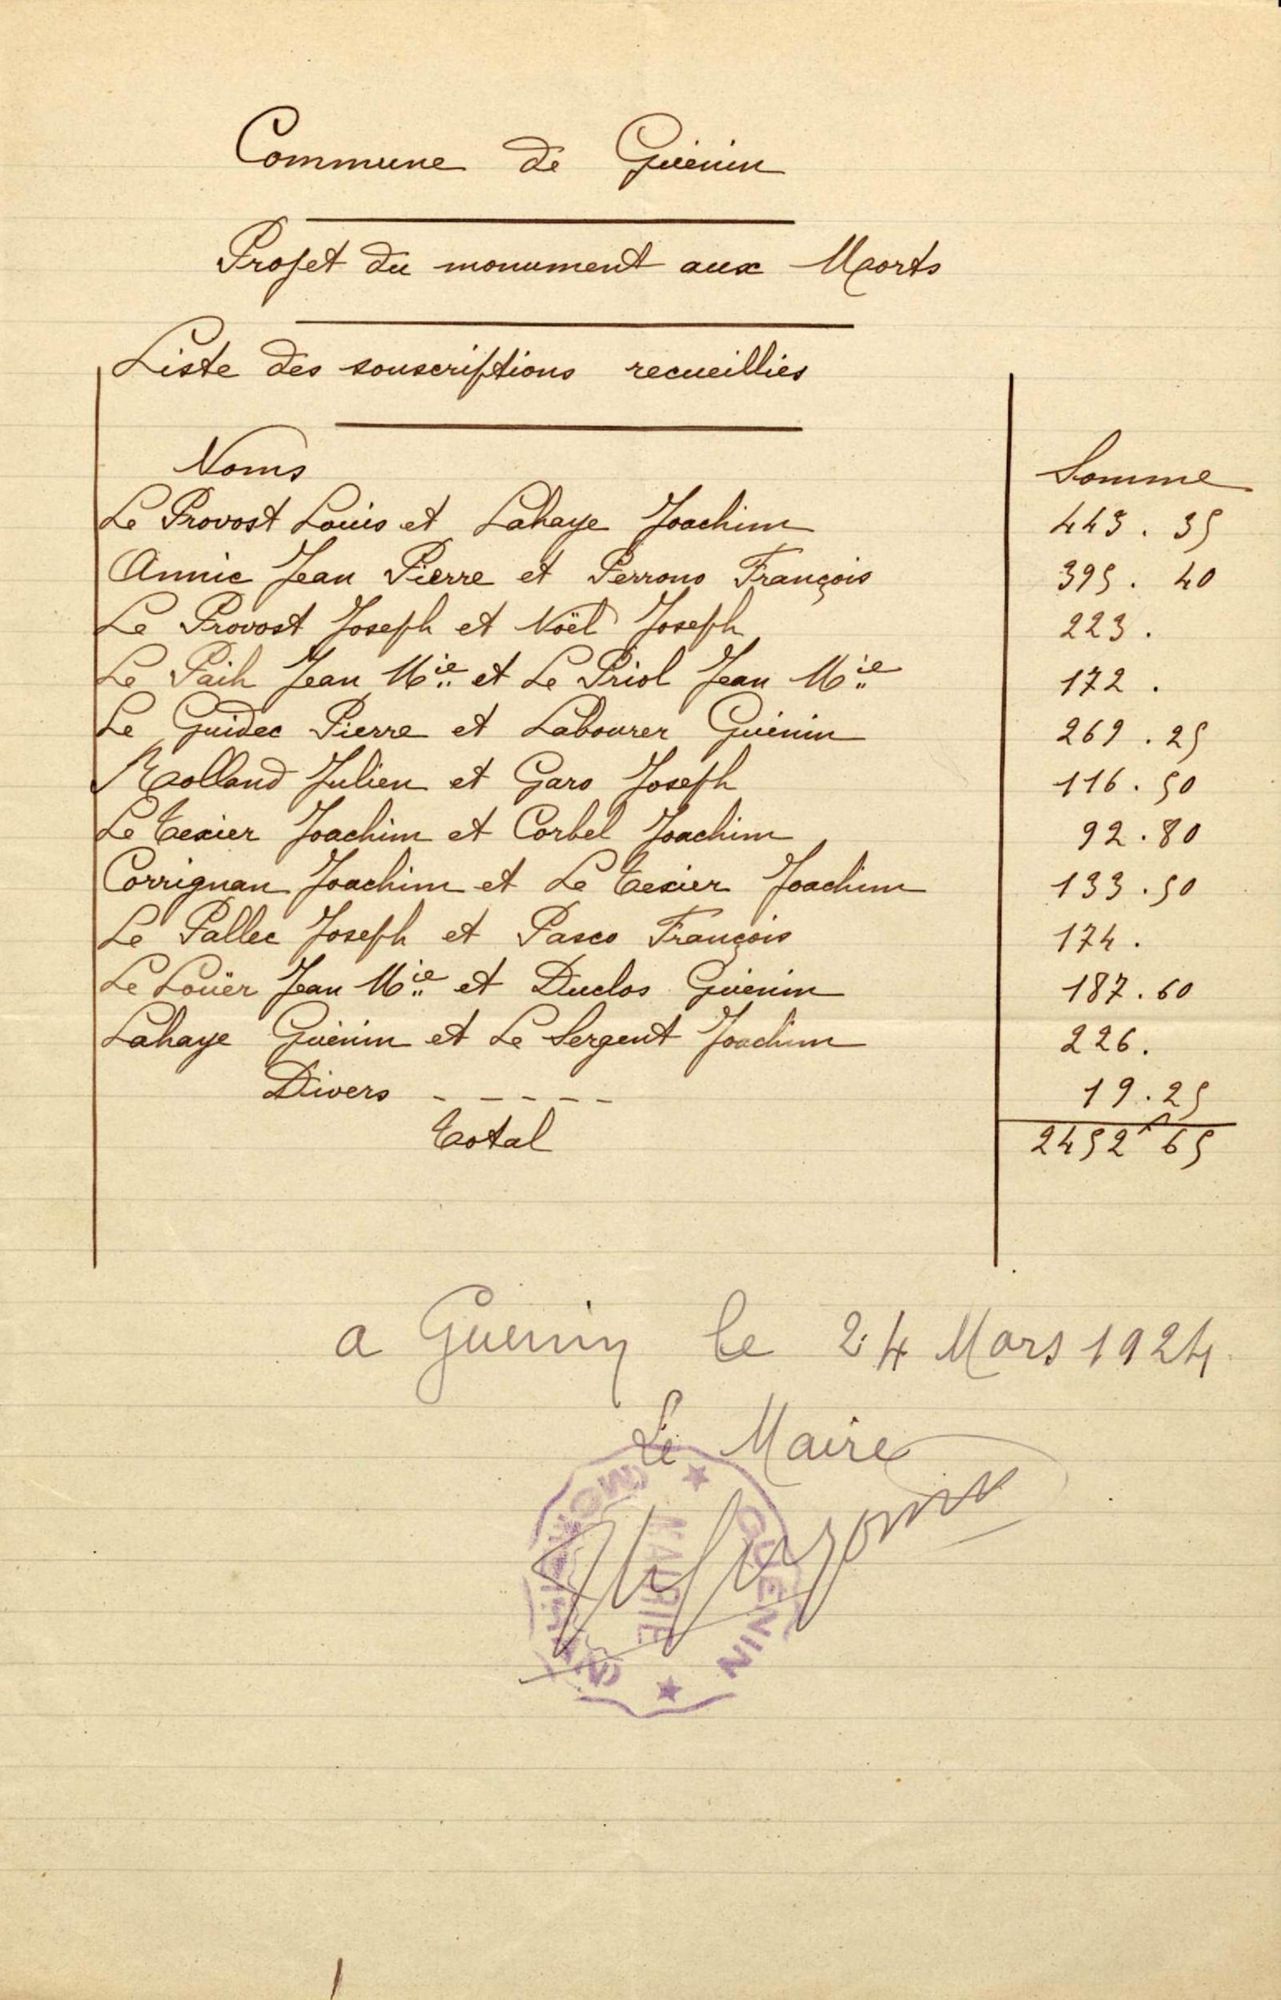 Commune de Guénin
Projet du monument aux Morts
Liste des souscriptions recueillies
Noms Somme
Le Provost Louis et Lahaye Joachim 443.35
Annic Jean Pierre et Perrono François 395.40
Le Provost Joseph et Noël Joseph 223.
Le Paih Jean Mie et Le Priol Jean Mie 172.
Le Guidec Pierre et Labourer Guénin 269.25
Rolland Julien et Garo Joseph 116.50
Le Texier Joachim et Corbel Joachim 92.80
Corrignan Joachim et Le Texier Joachim 133.50
Le Pallec Joseph et Pasco François 174.
Le Louër Jean Mie et Duclos Guénin 187.60
Lahaye Guénin et Le Sergent Joachim 226.
Divers _ _ _ _ _ 19.25
Total 2452f65
a Guenin le 24 Mars 1924
Le Maire
MAIRIE
GUÉNIN
MORBIHAN